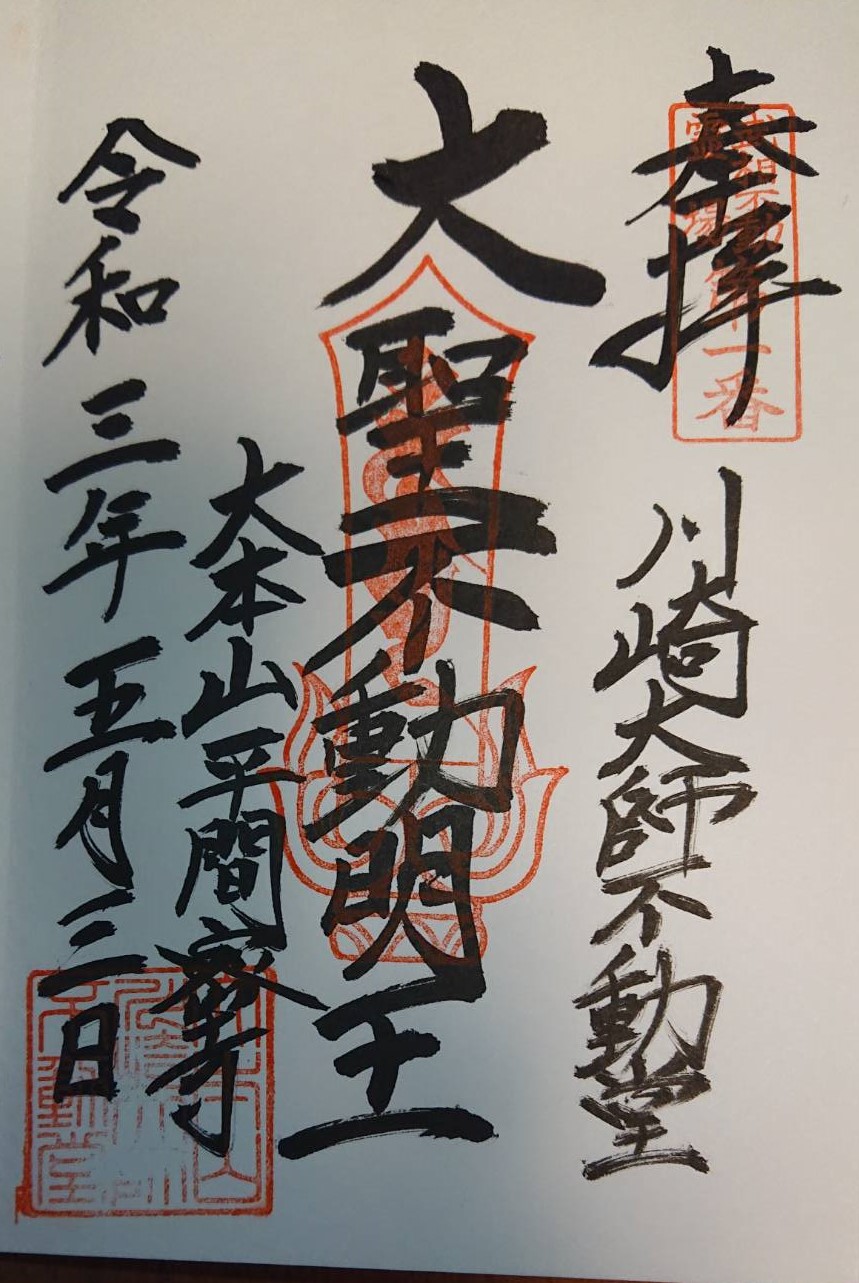 奉拝
川崎大師不動堂
大聖不動明王
大本山平間寺
令和三年五月三日